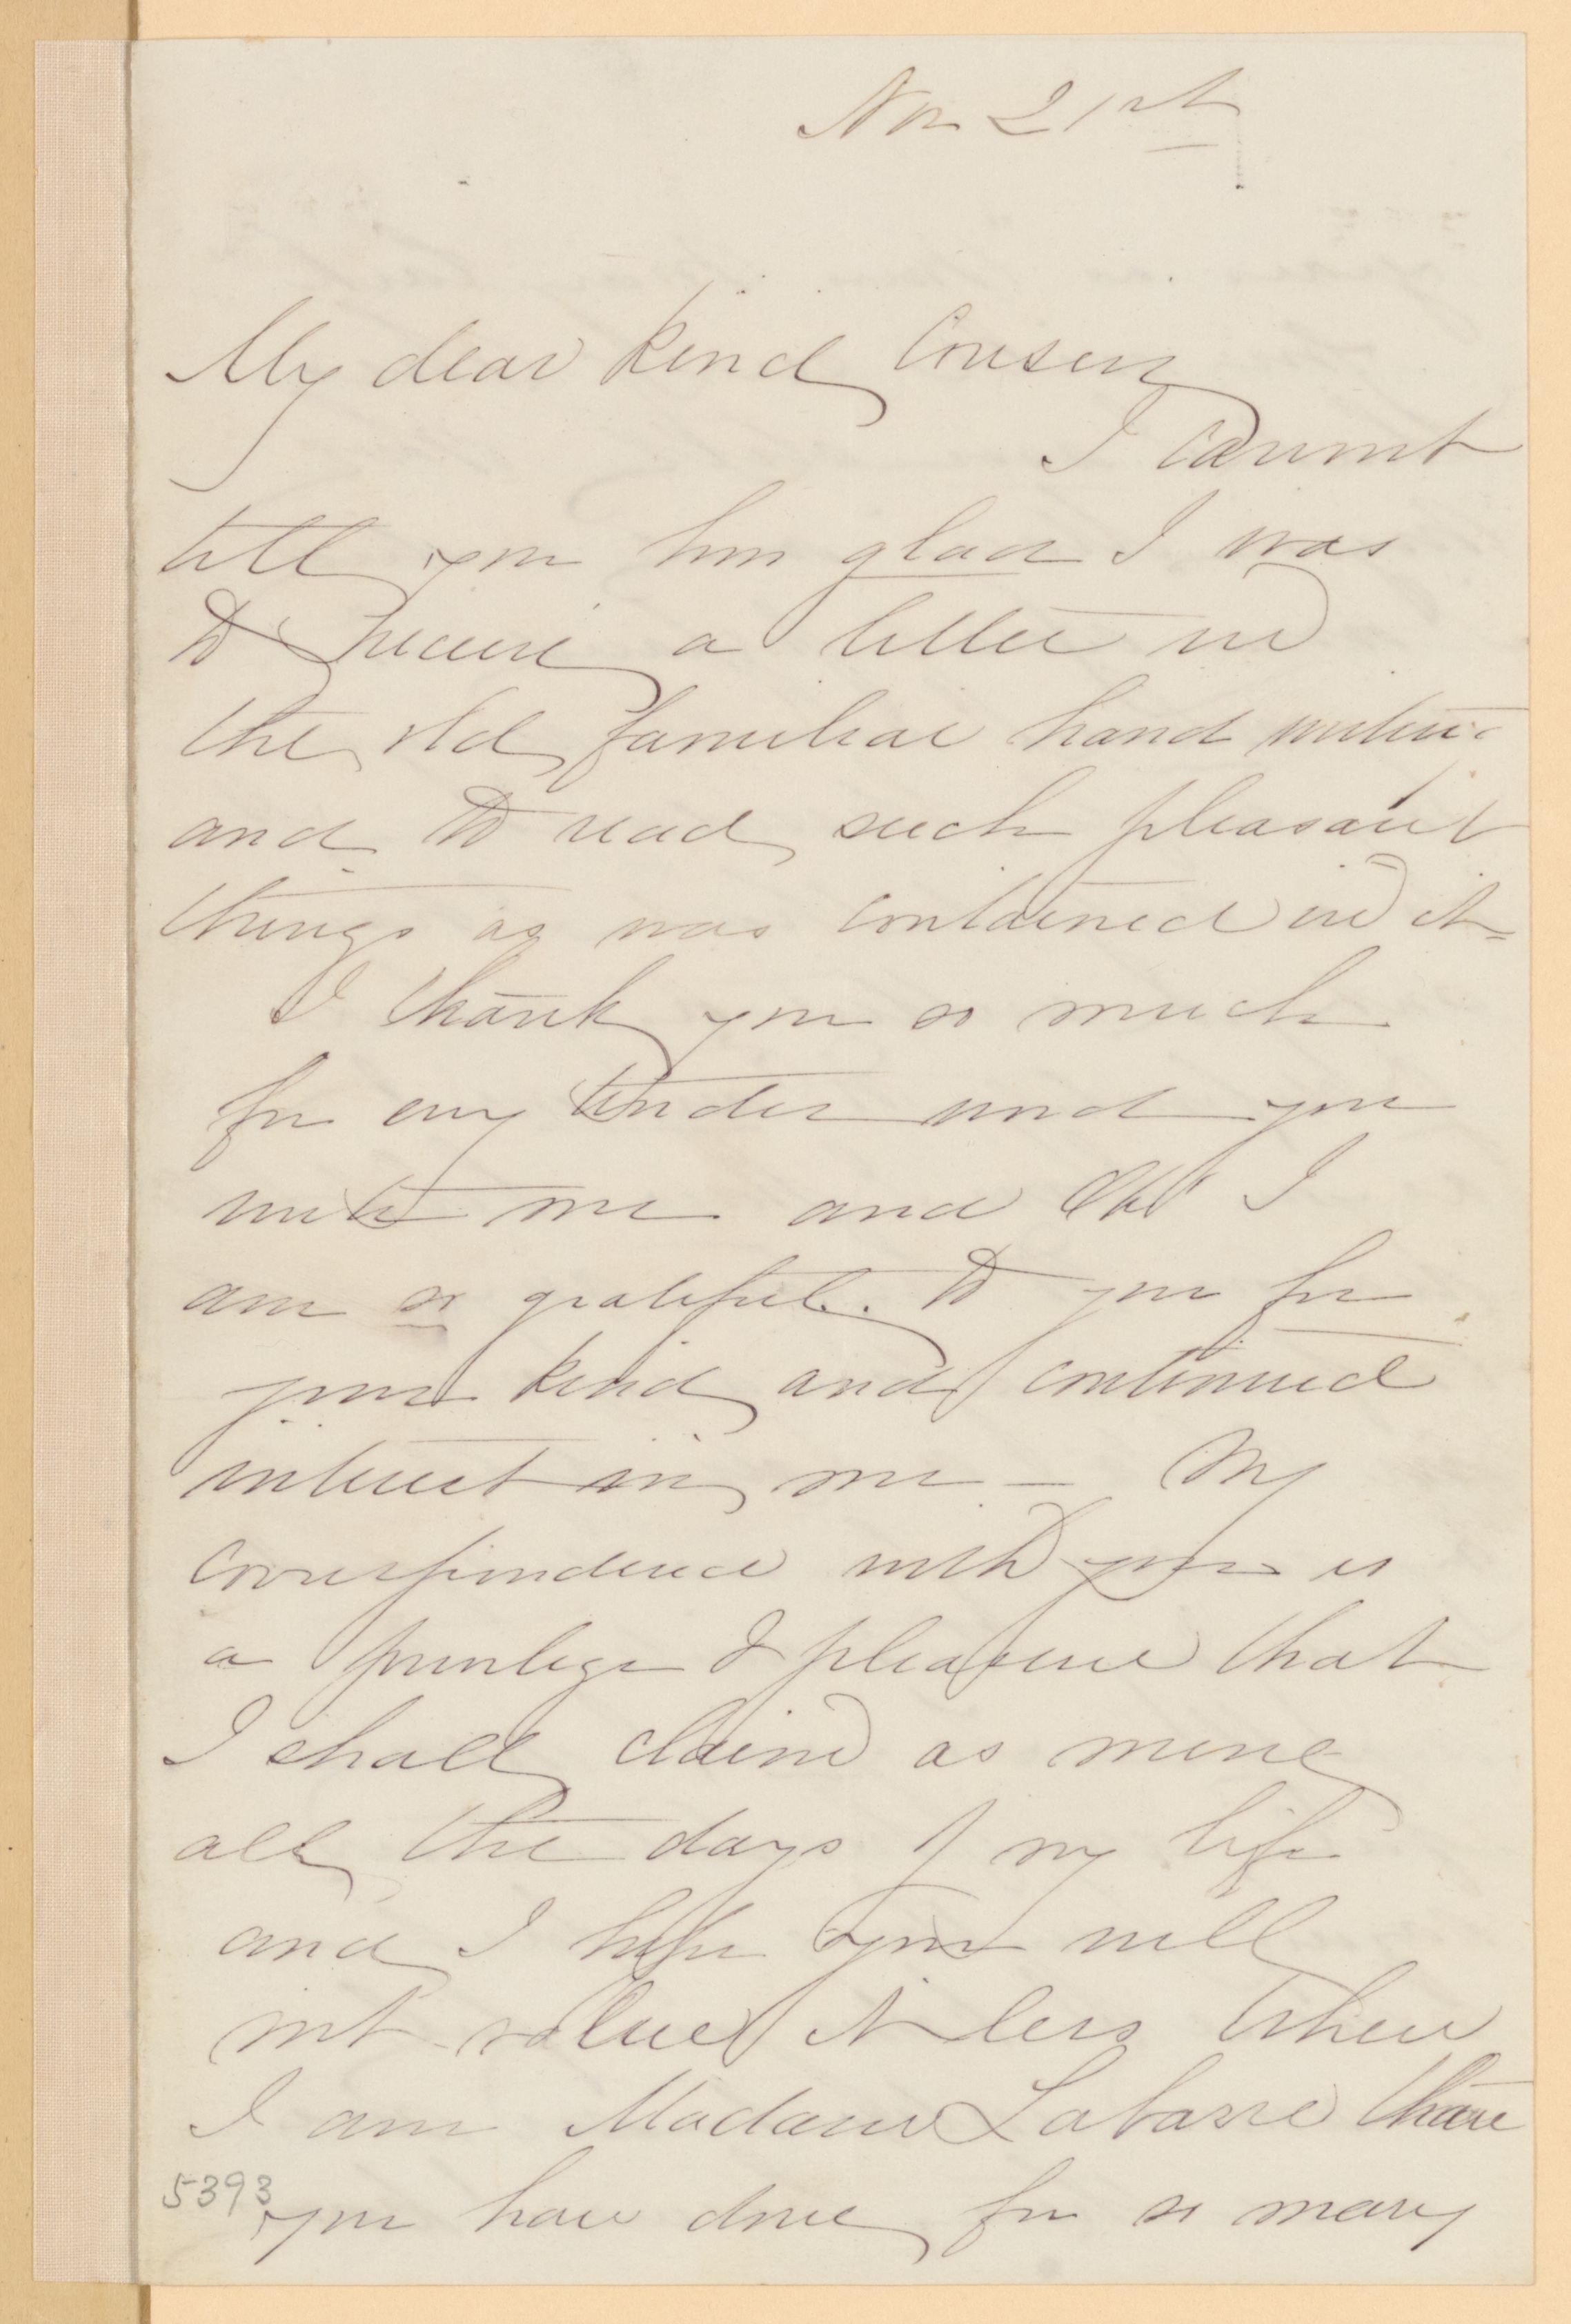 Nov 21st
My dear kind Cousin
I cannot
tell you how glad I was
to receive a letter in
the old familiar hand writing
and to read such pleasant
things as was contained in it =
I thank you so much
for evy tender word you
write me and Oh! I
am so grateful. to you for
your kind and continued
interest in me — My
correspondence with you is
a privilege & pleasure that
I shall claim as mine
all the days of my life
and I hope you will
not value it less when
I am Madam Labarre than
5393
you have done for so many